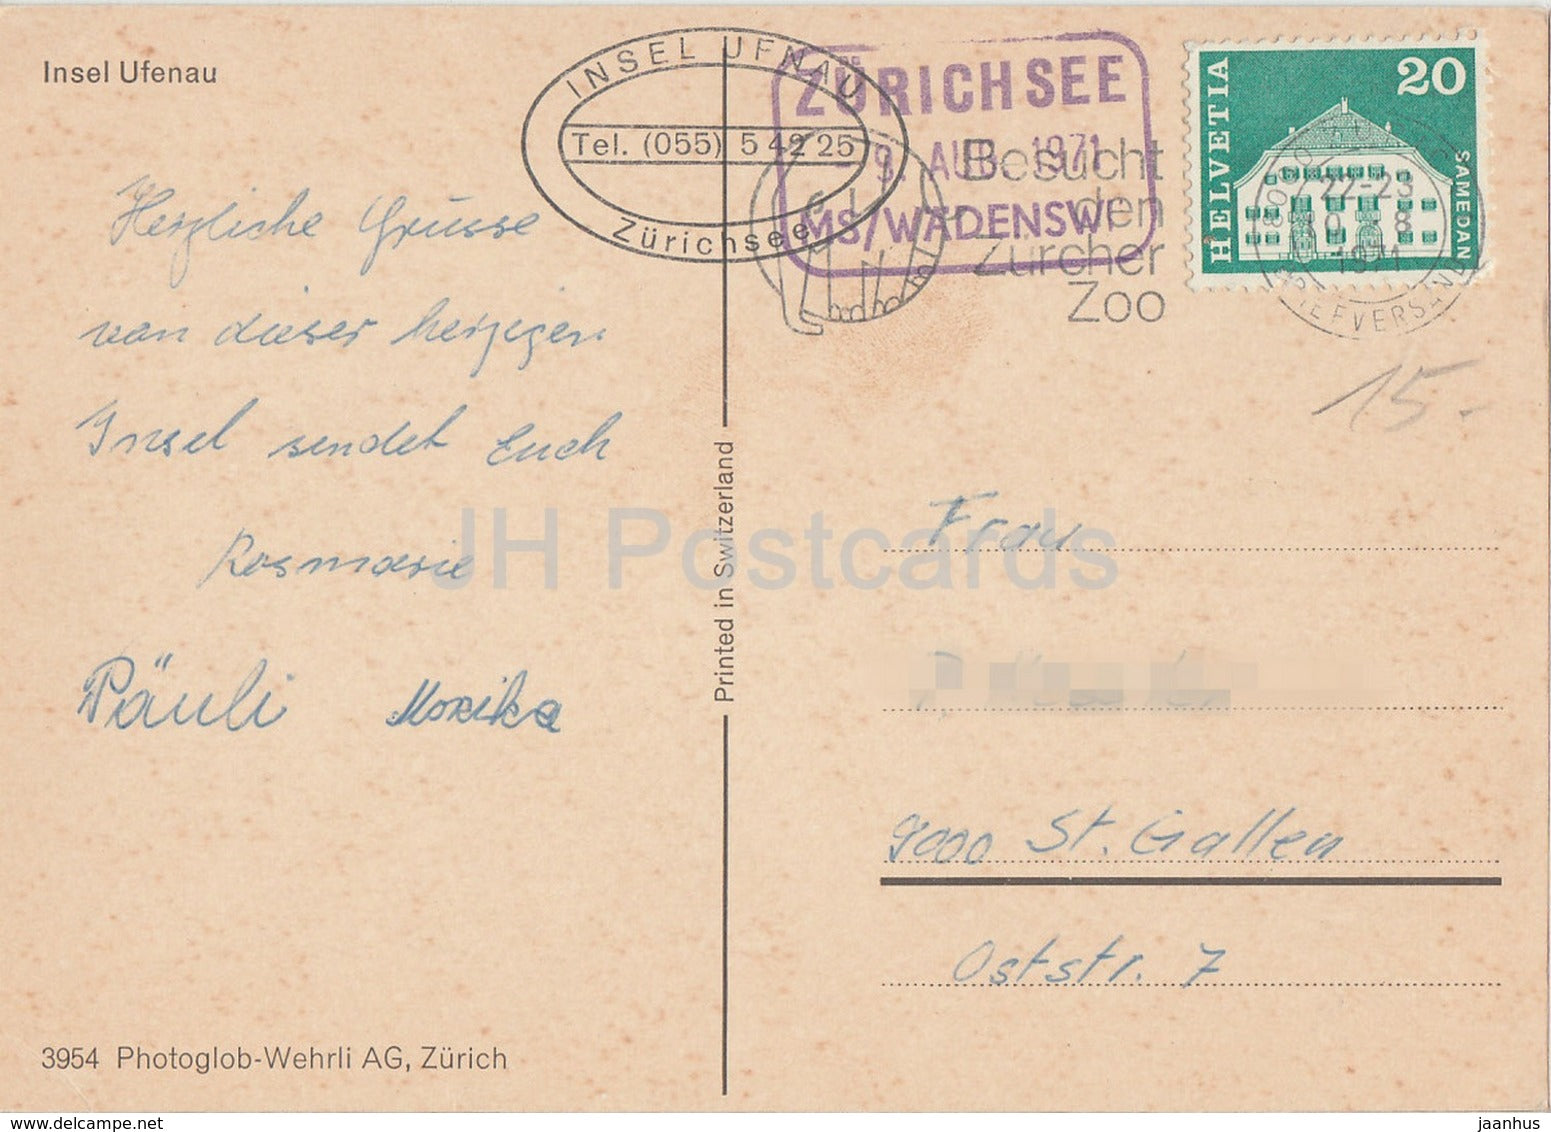 Insel Ufenau
INSEL UFNAU
Tel. (055) 5 42 25
Zürichsee
ZÜRICHSEE
9. AUG. 1971
MS/WÄDENSWI
Besucht
den
Zürcher
Zoo
HELVETIA
20
SAMEDAN
22-23
1971
BRIEFVERSAND
15.-
Herzliche Grüsse
von dieser herzigen
Insel sendet Euch
Rosmarie
Päuli Monika
Printed in Switzerland
JH Postcards
Frau
9000 St. Gallen
Oststr. 7
3954 Photoglob-Wehrli AG, Zürich
www.delcampe.net
jaanhus